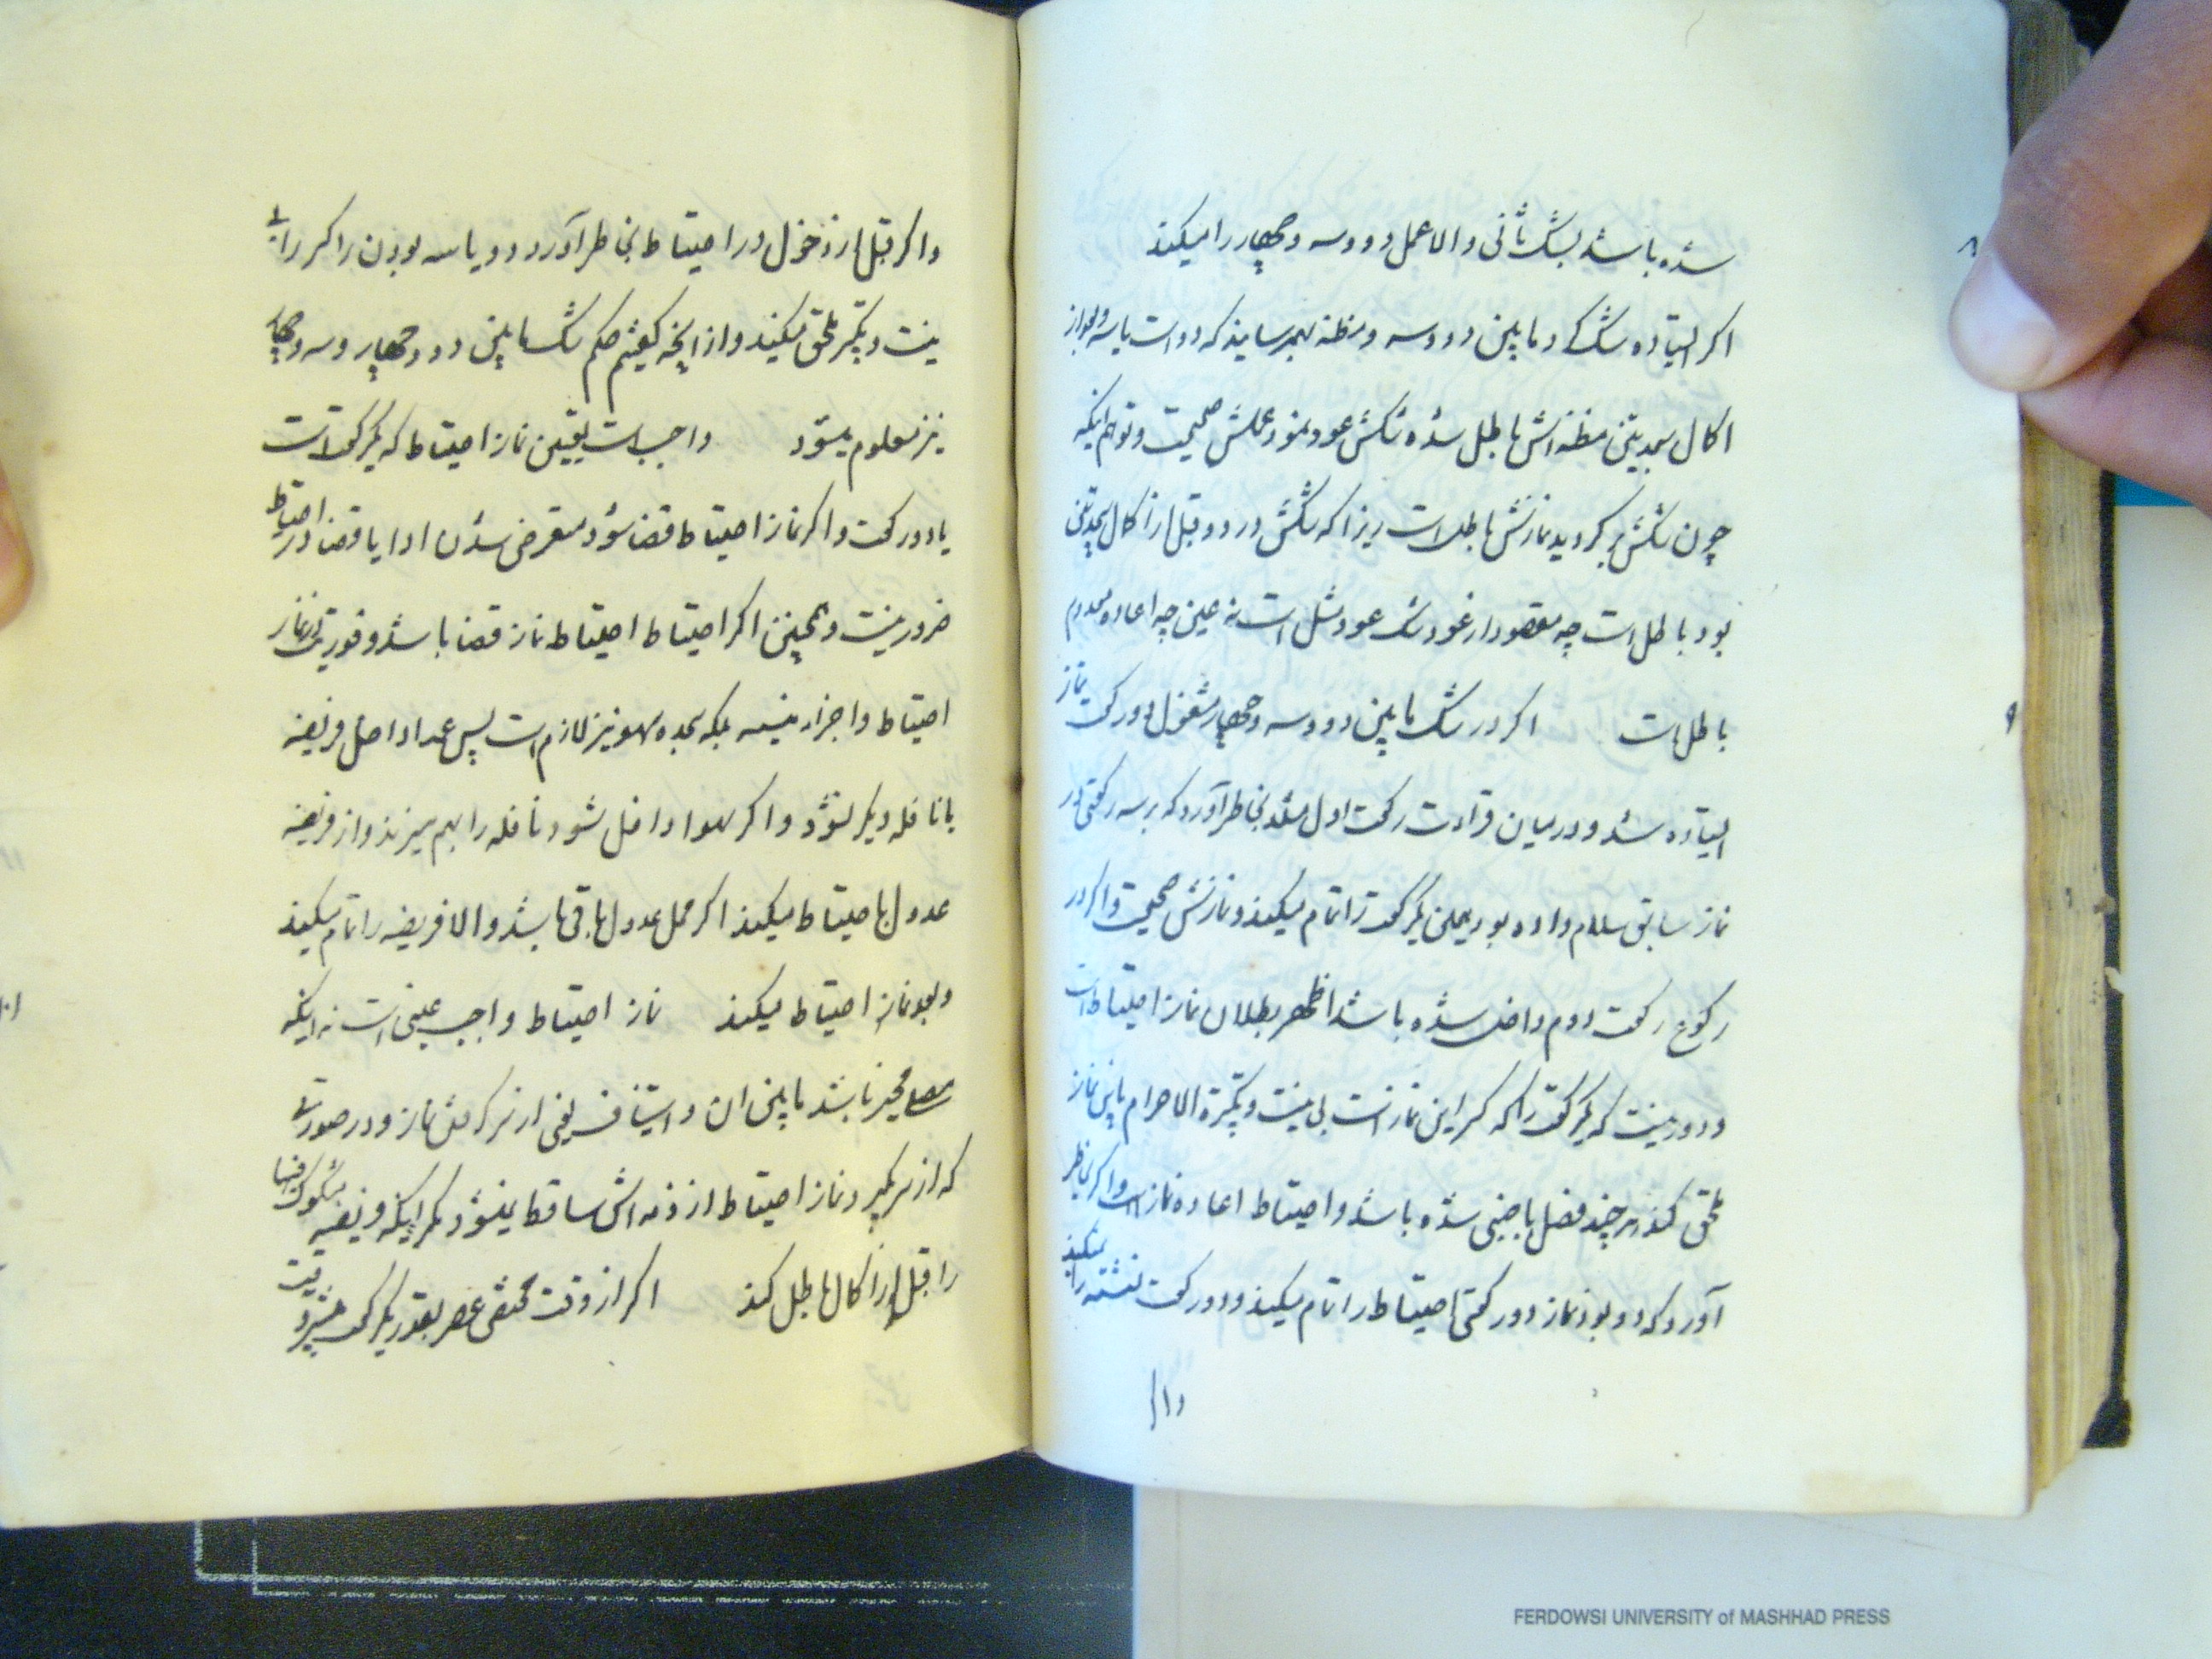 شده باشد بشک ثانی والا عمل دو و سه و چهار را میکند
۸
اکر ایستاده شک کرد مابین دو و سه و مظنه بهم رسانید که دو است یا سه و بعد از
اکمال سجدتین مظنه اش باطل شده شکش عود نمود عملش صحیحست و توهم اینکه
چون شکش برکردید نمازش باطل است زیرا که شکش در دو قبل از اکمال سجدتین
بود باطل است چه مقصود از عود شک عود مثل است نه عین چه اعاده معدوم
باطل است اکر در شک مابین دو و سه و چهار مشغول دو رکعت نماز
۹
ایستاده شد و در میان قرائت رکعت اول مثلا بخاطر آورد که بر سه رکعتی در
نماز سابق سلام داده بود همین یکرکعت را تمام میکند و نمازش صحیحست و اکر در
رکوع رکعت دوم داخل شده باشد اظهر بطلان نماز احتیاط است
و دور نیست که یکرکعت را که کسر این نماز است بی نیت و تکبیرة الاحرام باین نماز
ملحق کند هر چند فصل باجنبی شده باشد و احتیاط اعاده نماز است و اکر بخاطر
آورد که دو بود نماز دو رکعتی احتیاط را تمام میکند و دو رکعت نشسته را نمیکند
و اکر
و اکر قبل از دخول در احتیاط بخاطر آورد دو یا سه بودن را کسر را بی
نیت و تکبیر ملحق میکند و از آنچه کفتیم حکم شک مابین دو و چهار و سه و چهار
نیز معلوم میشود واجب است تعیین نماز احتیاط که یکرکعت است
یا دو رکعت و اکر نماز احتیاط قضا شود متعرض شدن ادا یا قضا در احتیاط
ضرور نیست و همچنین اکر احتیاط احتیاط نماز قضا باشد و فوریت در نماز
احتیاط و اجزاء منسیه بلکه سجده سهو نیز لازم است پس عمدا داخل فریضه
یا نافله دیکر نشود و اکر سهوا داخل شود نافله را بهم میزند و از فریضه
عدول باحتیاط میکند اکر محل عدول باقی باشد والا فریضه را تمام میکند
و بعد نماز احتیاط میکند نماز احتیاط واجب عینی است نه اینکه
مصلی مخیر باشد مابین ان و استیناف یعنی از سر کرفتن نماز و در صورتی
که از سر بکیرد نماز احتیاط از ذمه اش ساقط نمیشود مکر اینکه فریضه مشکوک فیها
را قبل از اکمال باطل کند اکر از وقت مختص عصر بقدر یکرکعت بیشتر وقت
FERDOWSI UNIVERSITY of MASHHAD PRESS